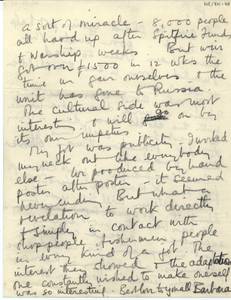 a sort of miracle – 8,000 people
all hard up after Spitfire Funds
& Warship weeks But was
got over £1500 in 12 wks the
time we gave ourselves & the
unit has gone to Russia
The cultural side was most
interesting & will go on by
its own impetus.
My job was publicity, I worked
my neck out like everybody
else – we produced by hand
poster after poster, it seemed
never ending But what a
revelation to work directly
& simply in contact with
shop people, fishermen, people
in every kind of a job! The
interest they showed – the adaptation
one constantly wished to make oneself
was so interesting. Best love to you all Barbara